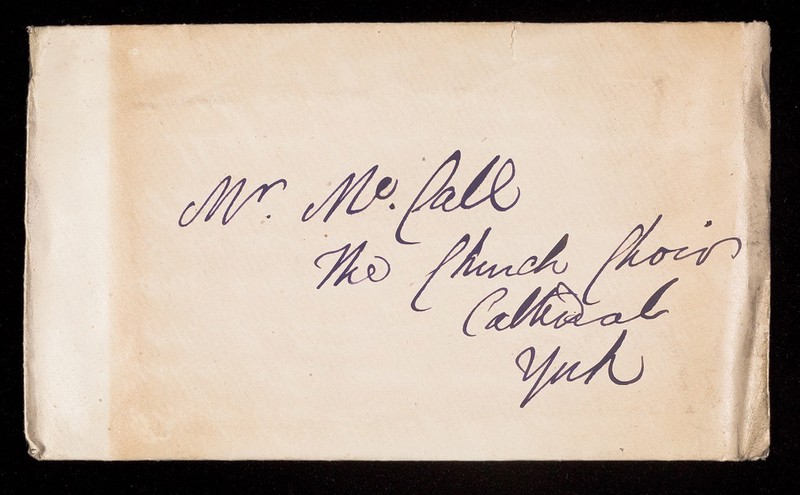 Mr. Mc. Call
The Church Choir
Cathedral
York